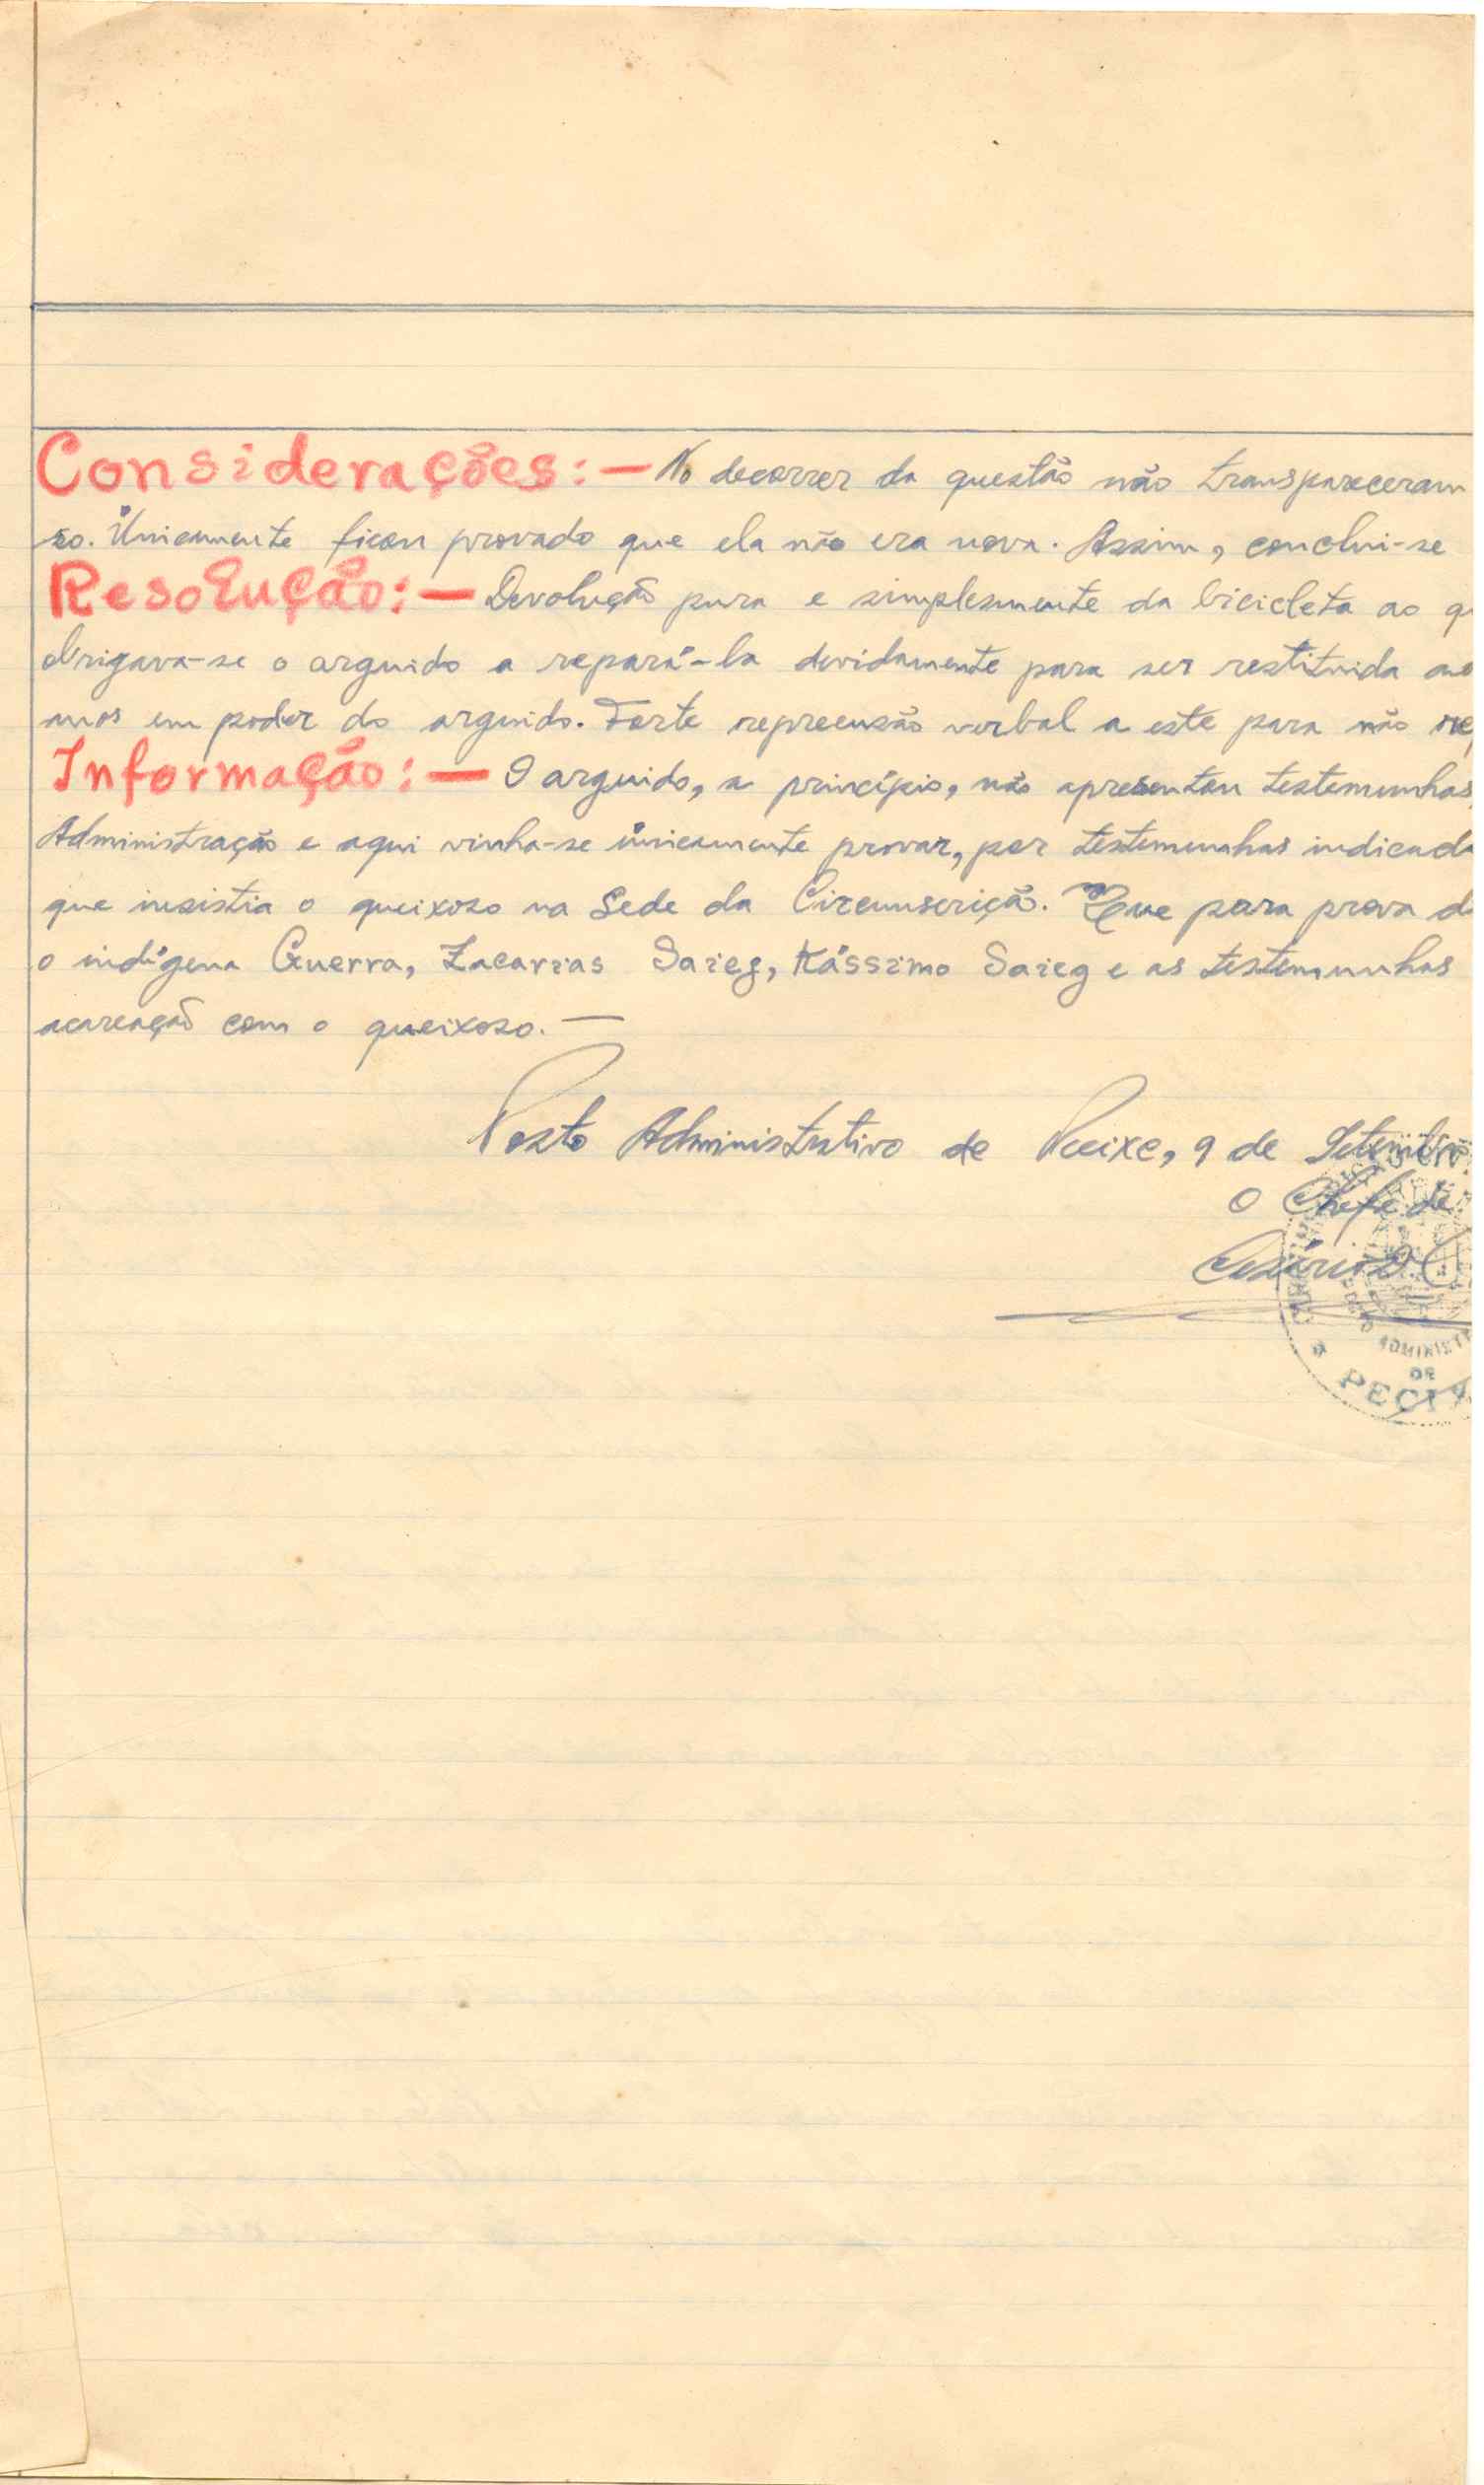 Considerações: — No decorrer da questão não transpareceram
so. Ùnicamente ficou provado que ela não era nova. Assim, conclui-se
Resolução: — Devolução pura e simplesmente da bicicleta ao q
obrigava-se o arguido a repará-la devidamente para ser restituida ao
anos em poder do arguido. Forte repreensão verbal a este para não re
Informação: — O arguido, a princípio, não apresentou testemunhas
Administração e aqui vinha-se ùnicamente provar, por testemunhas indicad
que insistia o queixoso na Sede da Circunscrição. Que para prova d
o indígena Guerra, Zacarias Saieg, Kássimo Saieg e as testemunhas
acareação com o queixoso. —
Posto Administrativo de 9 de Setembro
O Chefe de
Cesário
ADMINIST
DE